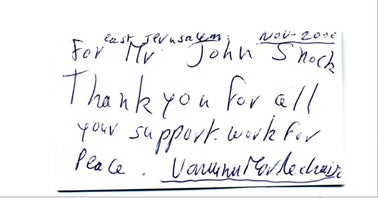 east Jerusalem. Nov-2006
For Mr John Snock
Thank you for all
your support. work for
Peace. Vanunu Mordechai